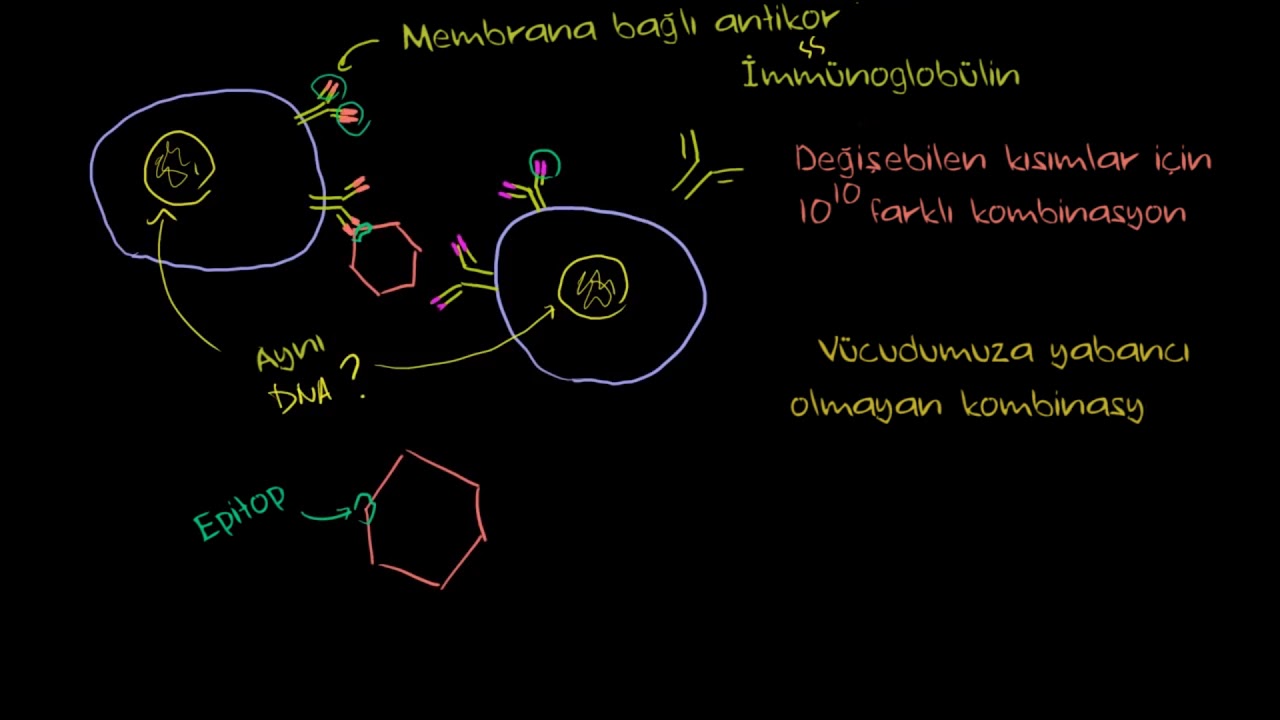 Membrana bağlı antikor
İmmünoglobülin
Değişebilen kısımlar için
10^10 farklı kombinasyon
Aynı
DNA ?
Vücudumuza yabancı
olmayan kombinasy
Epitop